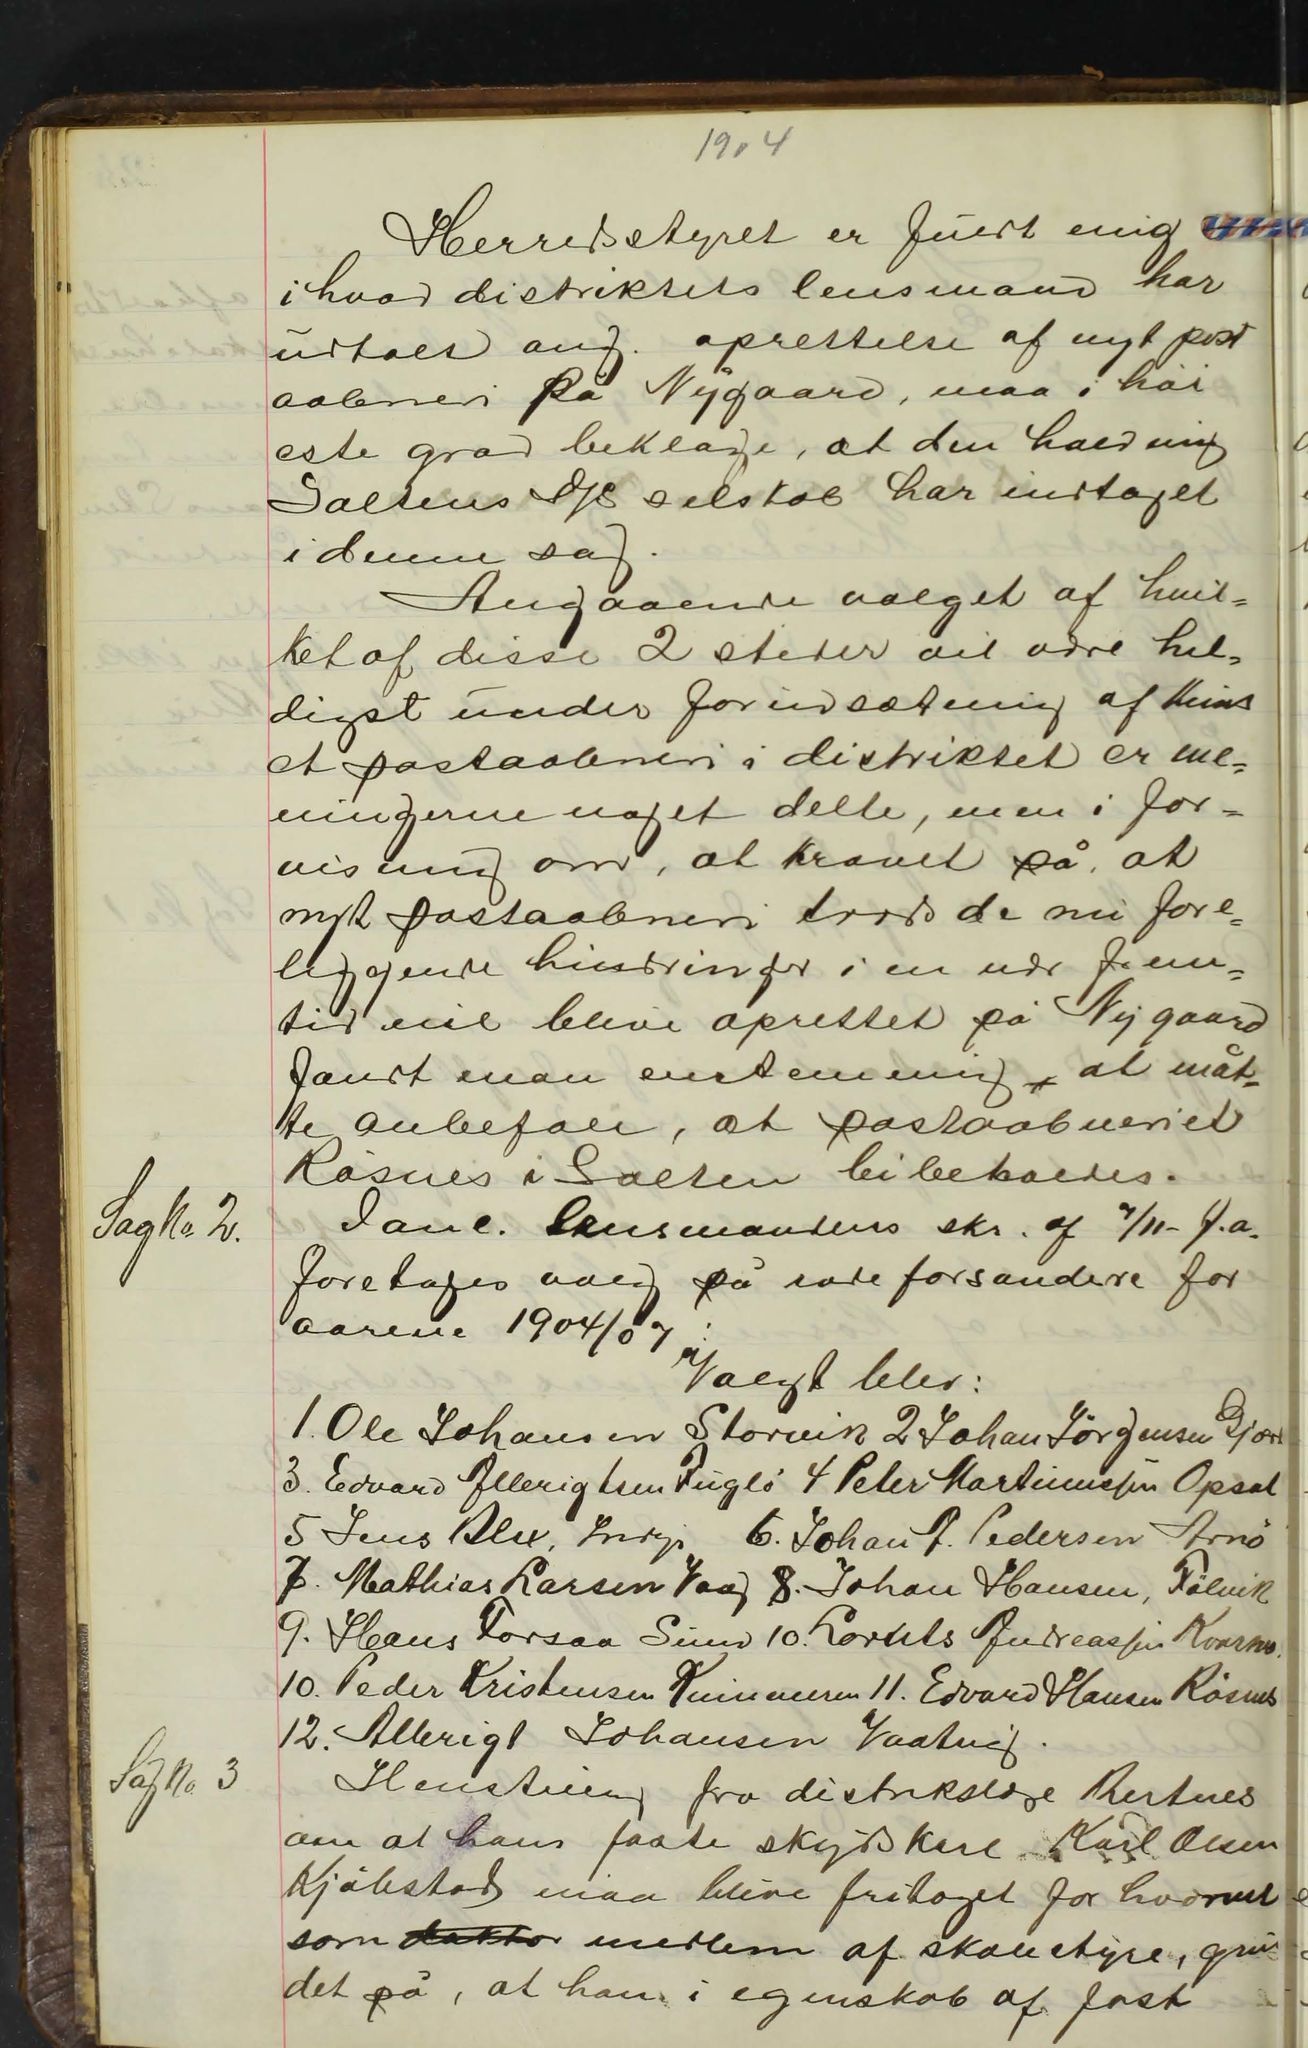 1904
Herredsstyret er fuldt enig
i hvad distriktets lensmand har
udtalt ang. oprettelse af nyt post
aabneri på Nygaard, maa i höi
este grad beklage, at den holdning
Saltens D/S selskab har indtaget
i denne sag.
Angaaende valget af hvil-
ket af disse 2 steder vil være hel-
digst under forudsætning af kuns
et postaabneri i distriktet er me-
ningerne noget delte, men i for-
visning om, at kravet på, at
nyt postaabneri trods de nu fore-
liggende hindringer i en nær frem-
tid vil blive oprettet på Nygaard
fandt man enstemmig at måt-
te anbefale, at postaabneriet
Rösnes i Salten bibeholdes.
Sag No 2.
Iane. lensmandens skr. af 7/11- f.a.
foretages valg på rodeforstandere for
aarene 1904/07
Valgt blev:
1. Ole Johansen Storvik 2 Johan Jörgensen
3. Edvard Allerigtsen Fuglö 4 Peter Martinussen Opsal
5 Jens Alex. Indyr 6. Johan A. Pedersen Arnö
7. Mathias Larsen Vaag 8. Johan Hansen, Følvik
9. Hans Forsaa Sund 10. Lorents Andreassen
10. Peder Kristensen 11. Edvard Hansen Rösnes
12. Allerigt Johansen Vaatvig.
Sag No. 3
Henstilling fra distriktslæge
om at hans faste skydskarl Karl Olsen
Kjöbstad maa blive fritaget for hvervet
som medlem af skolestyre, grun
det på, at han i egenskab af fast